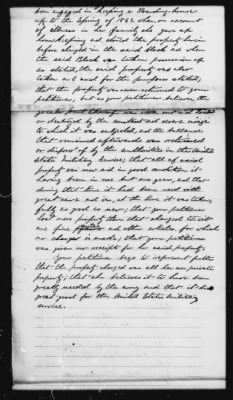 been engaged in keeping a Boarding house
up to the Spring of 1862 when on account
of illness in her family she gave up
housekeeping and stored the property herein
before charged in the said block and when
the said Block was taken possession of
as stated, the said property was also
taken and used for the purposes stated,
that the property was never returned to your
petitioner, but as your petitioner believes the
greater part thereof was
or destroyed by the constant and severe usage
to which it was subjected, and the balance
that remained afterwards was
or disposed of by the authorities in the United
States Military Service; that all of said
property was new and in good condition it
having been in use but one year, and that
during that time it had been used with
great care and was, at the time it was taken,
fully as good as new; that your petitioner
lost more property than that charged to wit
one fine and other articles for which
no charge is made; that your petitioner
was given no receipt for her said property.
Your petitioner begs to represent further
that the property charged was all her own private
property; that she believes it to have been
greatly needed by the army and that it did
great good for the United States Military
service.